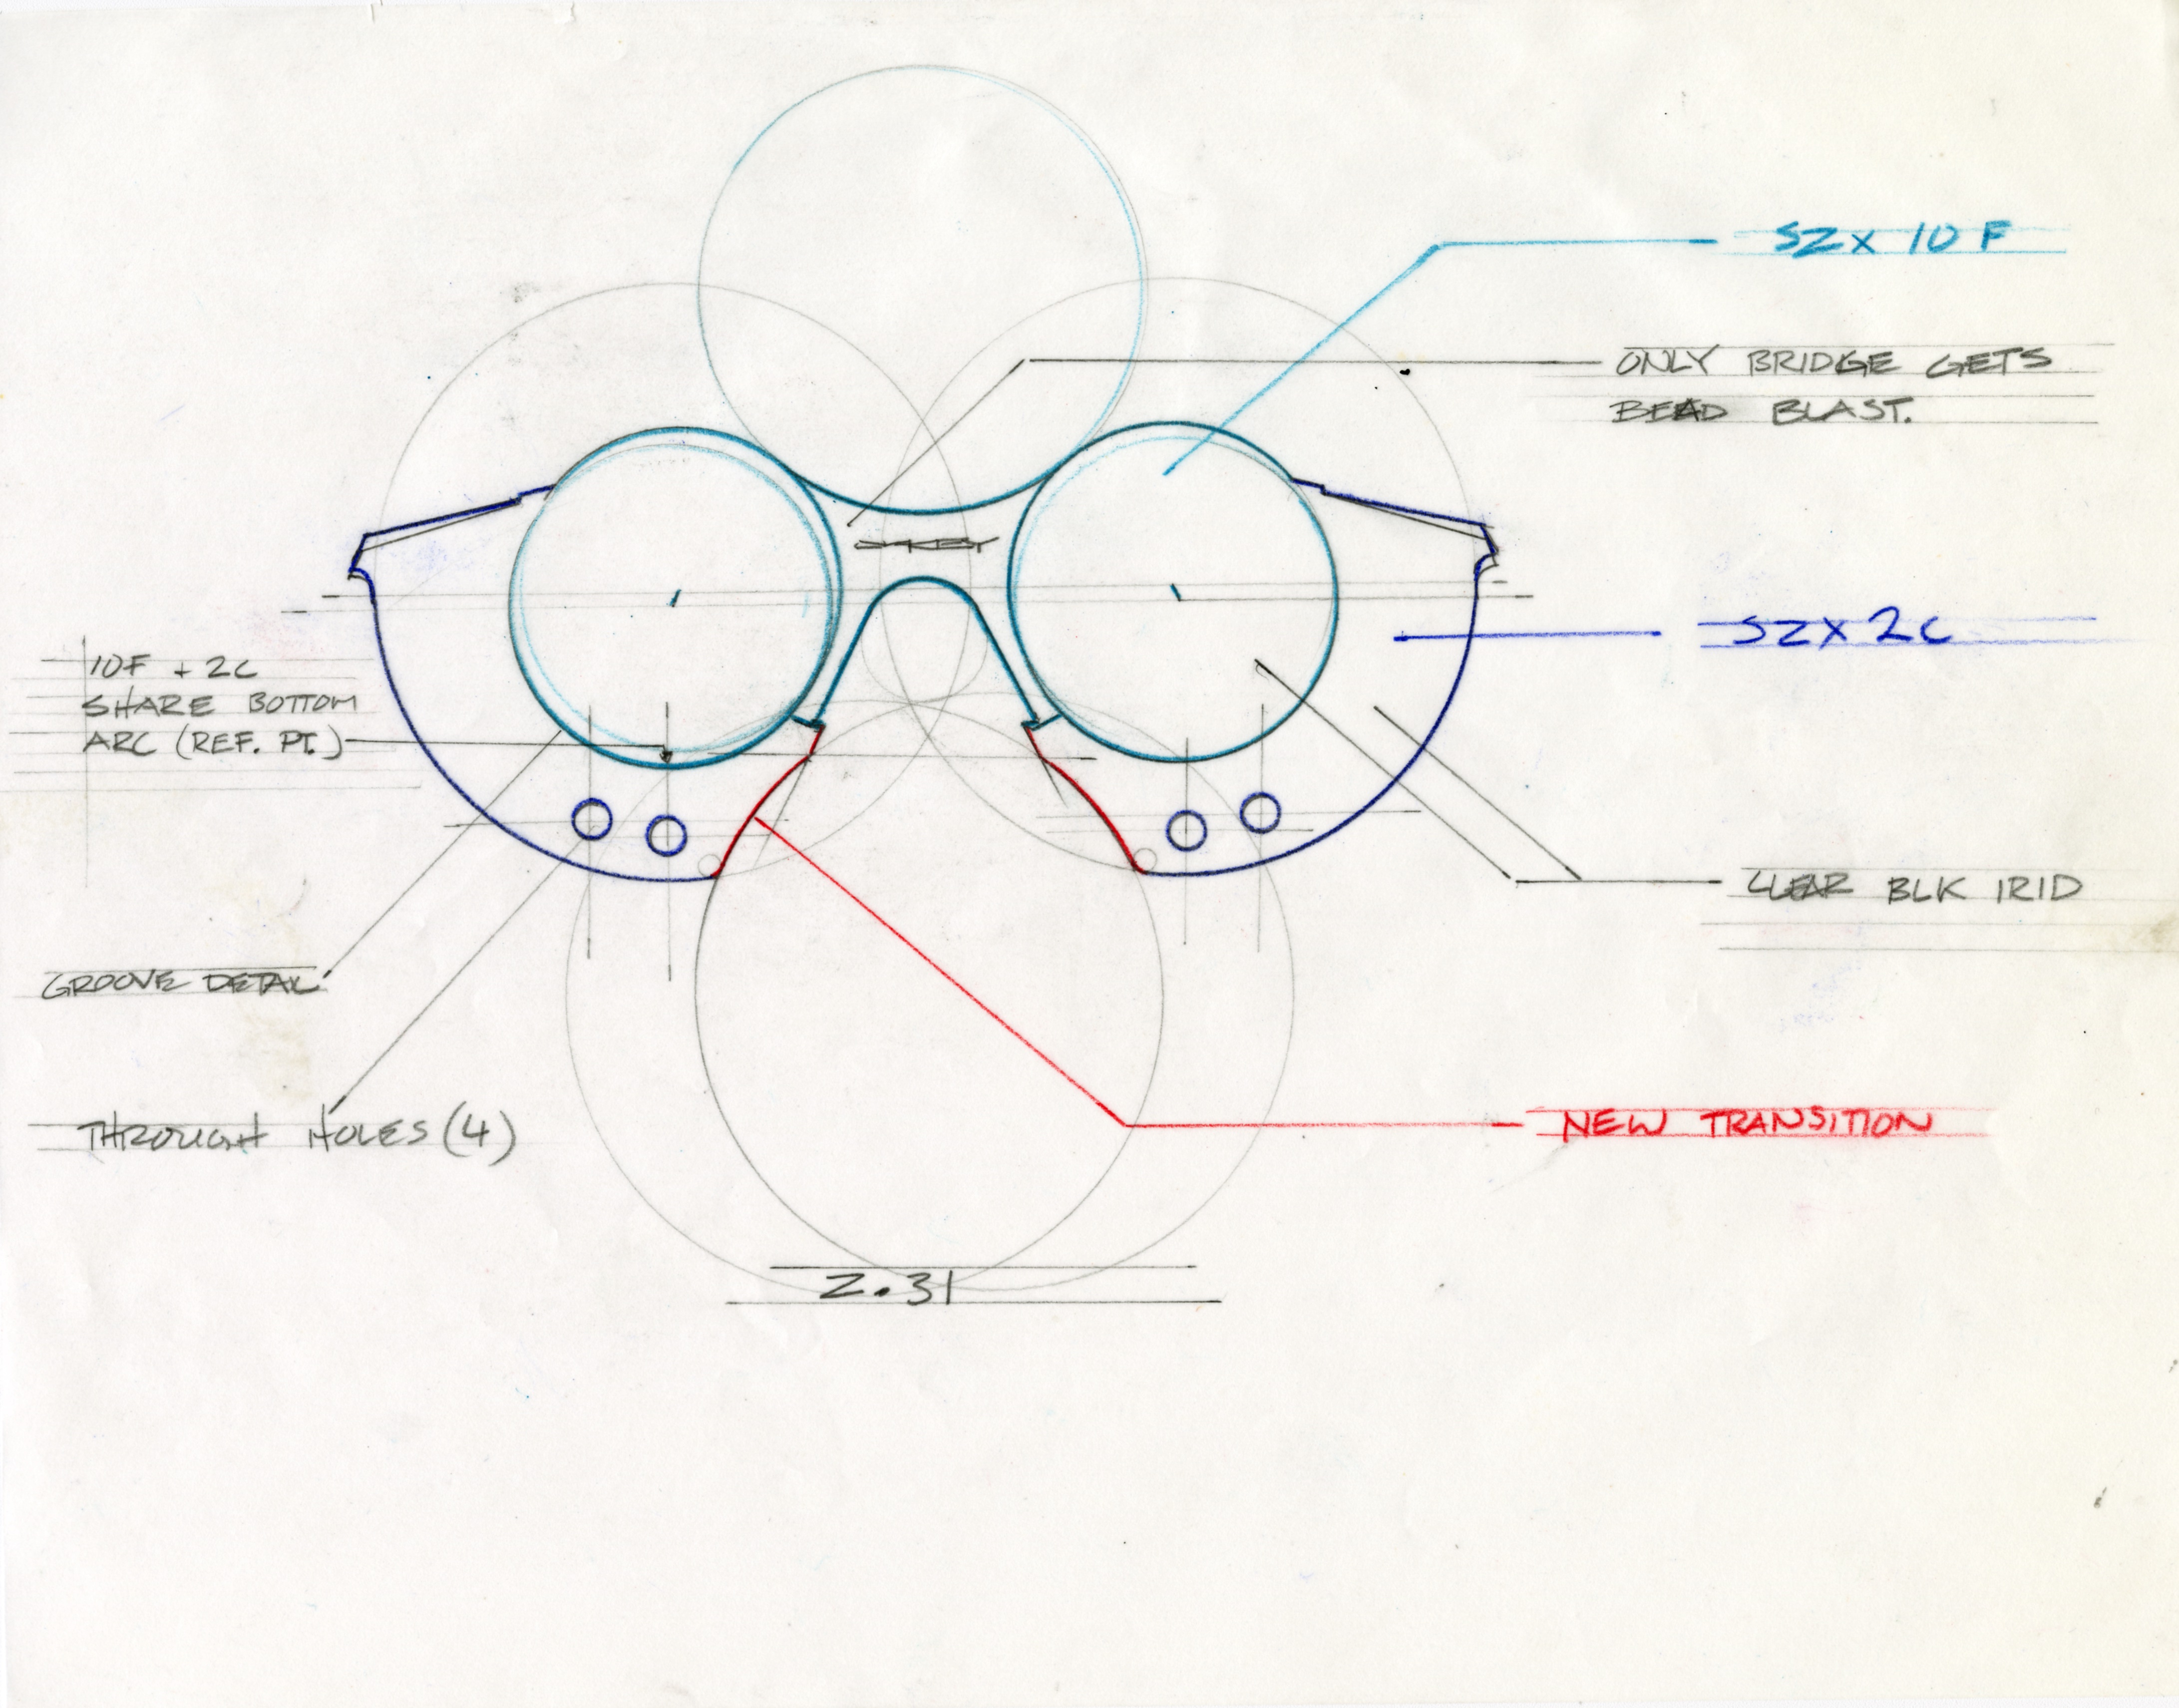 SZX 10F
ONLY BRIDGE GETS
BEAD BLAST.
SZX 2C
10F + 2C
SHARE BOTTOM
ARC (REF. PT.)
CLEAR BLK IRID
GROOVE DETAIL
THROUGH HOLES (4)
NEW TRANSITION
2.31